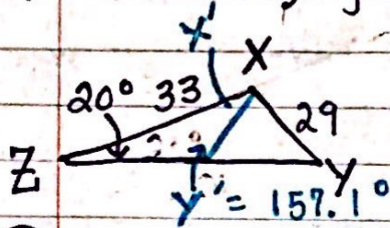 X'
X
20° 33
29
Z
Y
Y' = 157.1°